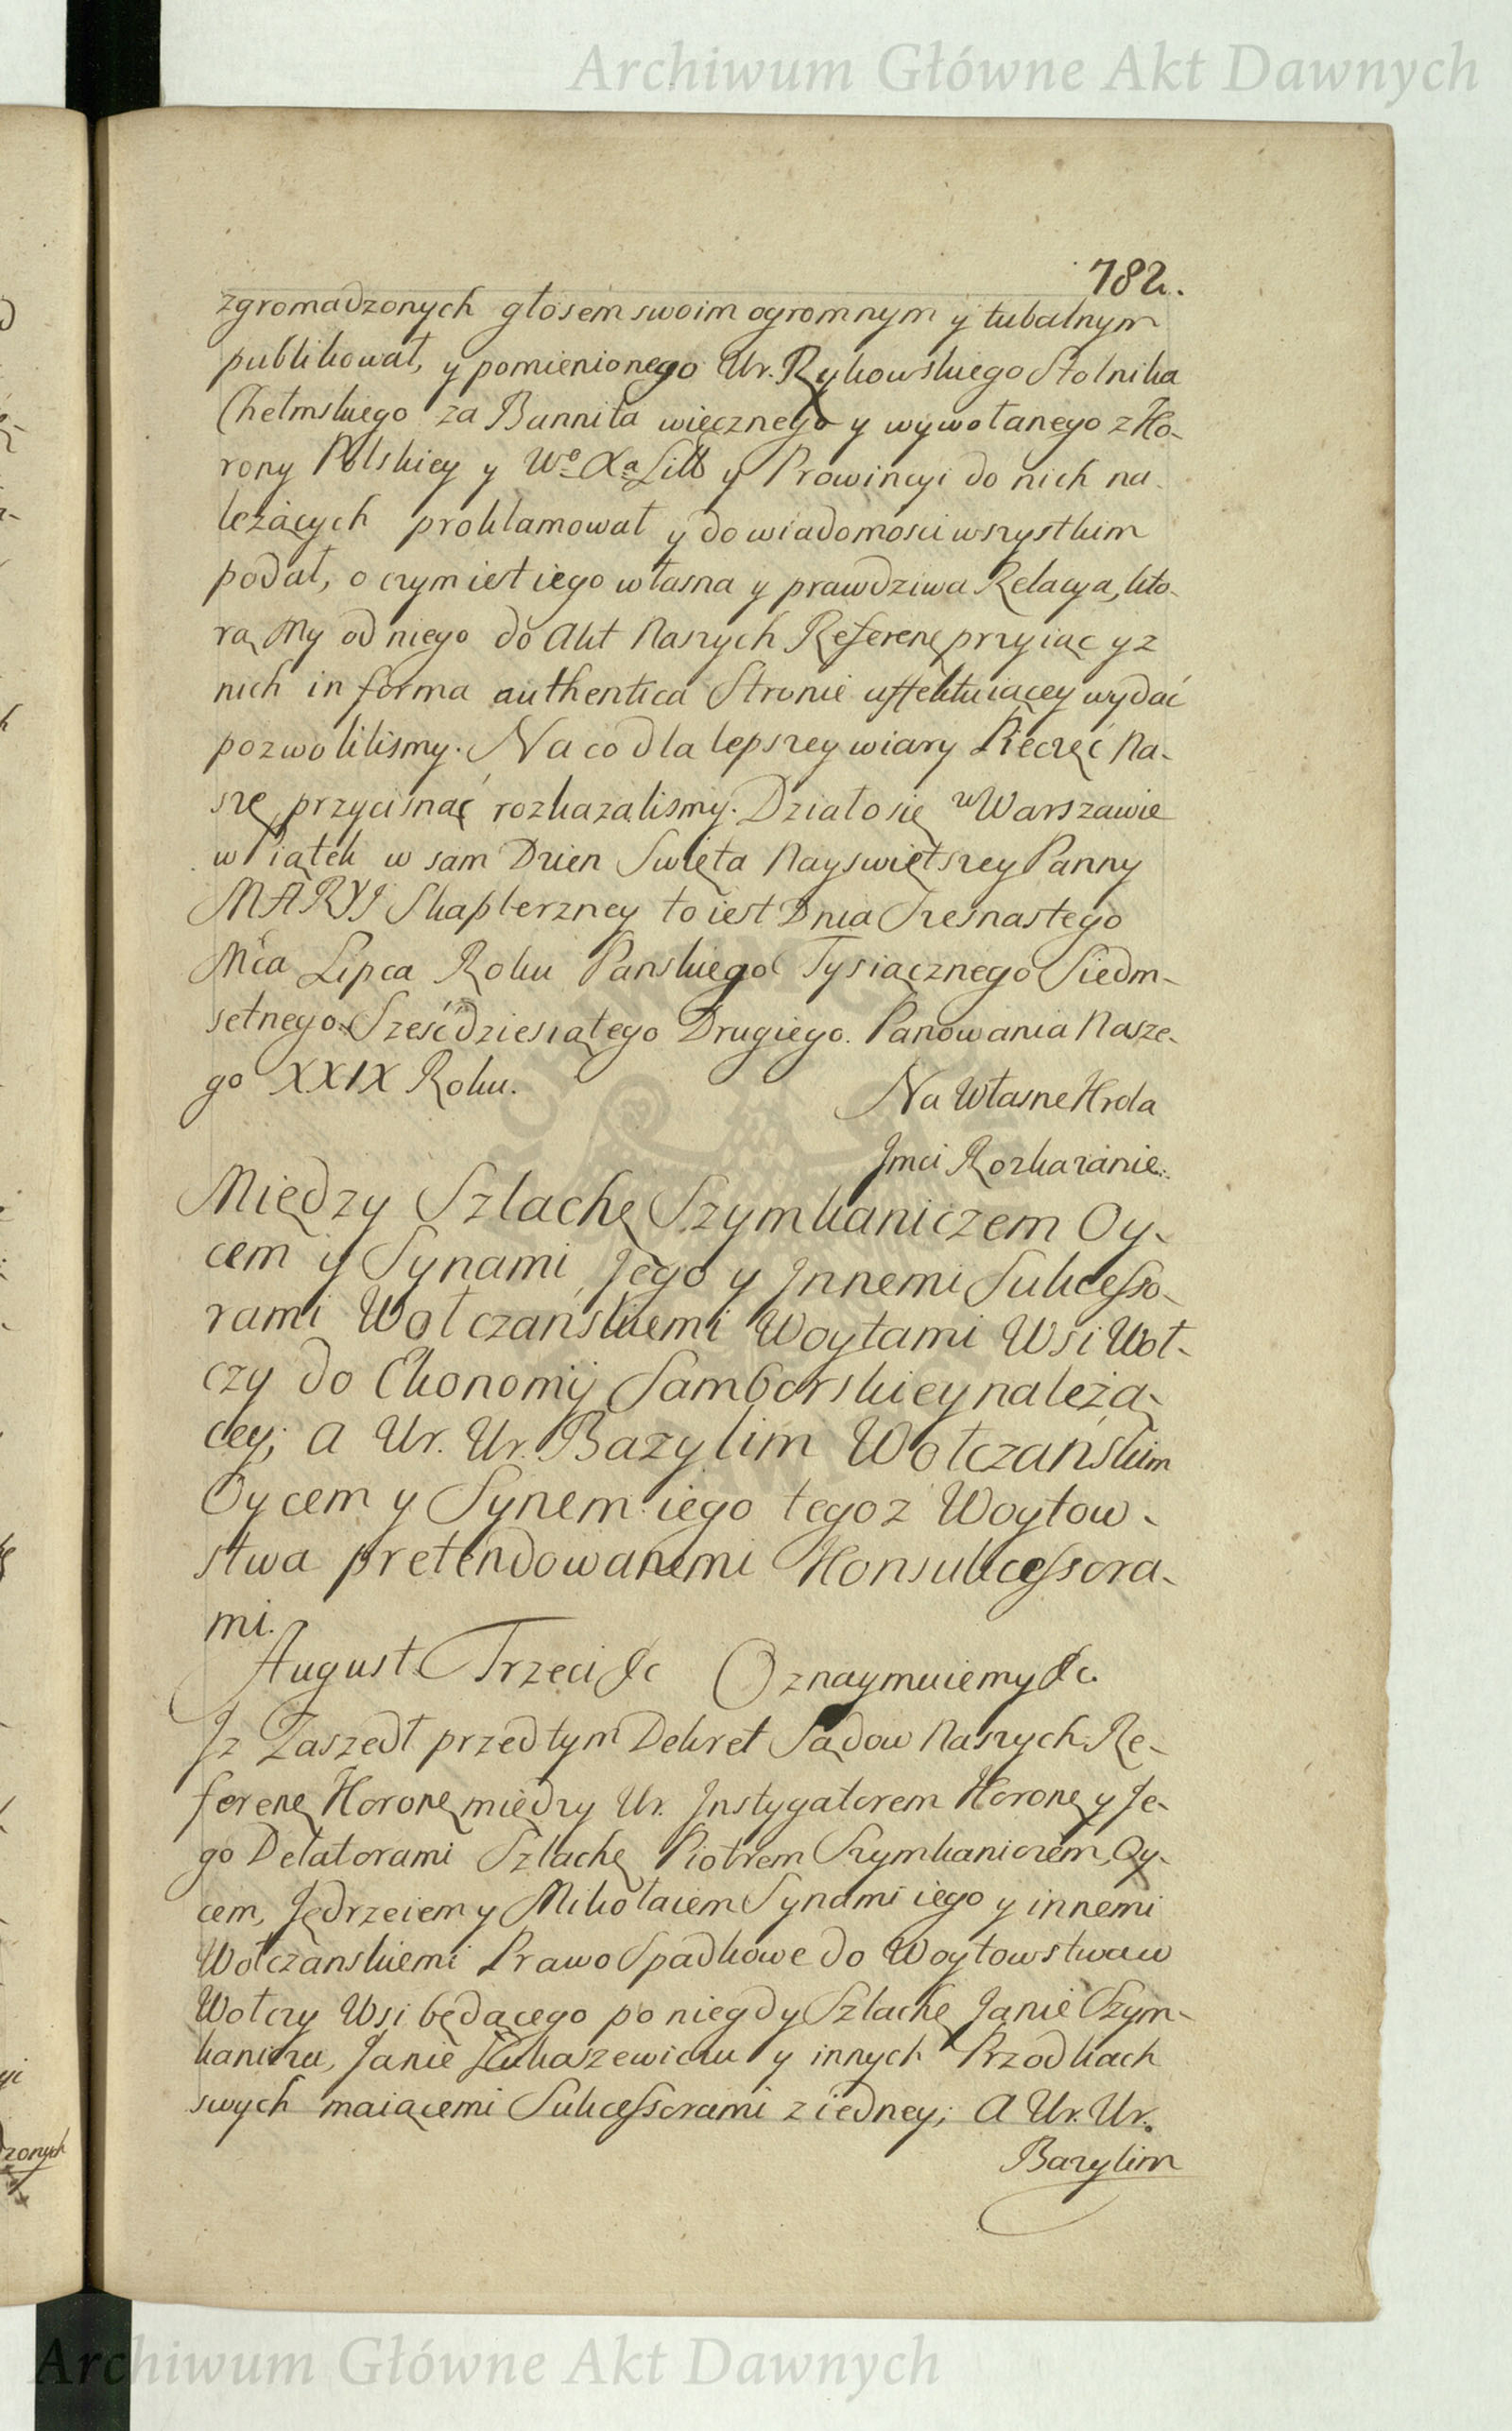 Archiwum Główne Akt Dawnych
782.
zgromadzonych głosem swoim ogromnym y tubalnym
publikował, y pomienionego Ur. Rykowskiego Stolnika
Chełmskiego za Bannita wiecznego y wywołanego z Ko-
rony Polskiey y Wo Xa Litt y Prowincyi do nich na-
leżących proklamował y do wiadomosci wszystkim
podał, o czym iest iego własna y prawdziwa Relacya, kto-
rą My od niego do Akt Naszych Referenę przyiąc y z
nich in forma authentica Stronie affektuiącey wydać
pozwolilismy. Na co dla lepszey wiary Pieczęć Na-
szę przycisnąć rozkazalismy. Działo się w Warszawie
w Piątek w sam Dzien Swięta Nayswiętszey Panny
MARYI Skaplerzney to iest Dnia Szesnastego
Mca Lipca Roku Panskiego Tysiącznego Siedm-
setnego Sześćdziesiątego Drugiego. Panowania Nasze-
go XXIX Roku.
Na Własne Krola
Jmci Rozkazanie.
Między Szlachę Szymkaniczem Oy-
cem y Synami Jego y Innemi Sukcesso-
rami Wołczańskiemi Woytami Wsi Woł-
czy do Ekonomij Samborskiey należą-
cey; a Ur. Ur. Bazylim Wołczańskim
Oycem y Synem iego tegoz Woytow-
stwa pretendowanemi Konsukcessora-
mi.
August Trzeci &c Oznaymuiemy &c.
Iz Zaszedł przedtym Dekret Sądow Naszych Re-
ferenę Koronę między Ur. Instygatorem Koronę y Je-
go Delatorami Szlachę Piotrem Szymkaniczem, Oy-
cem, Jędrzeiem y Mikołaiem Synami iego y innemi
Wołczanskiemi Prawo Spadkowe do Woytowstwa w
Wołczy Wsi będącego po niegdy Szlachę Janie Szym-
kaniczu, Janie Łukaszewiczu y innych Przodkach
swych maiącemi Sukcessorami z iedney; a Ur. Ur.
Bazylim
zonych
Archiwum Główne Akt Dawnych